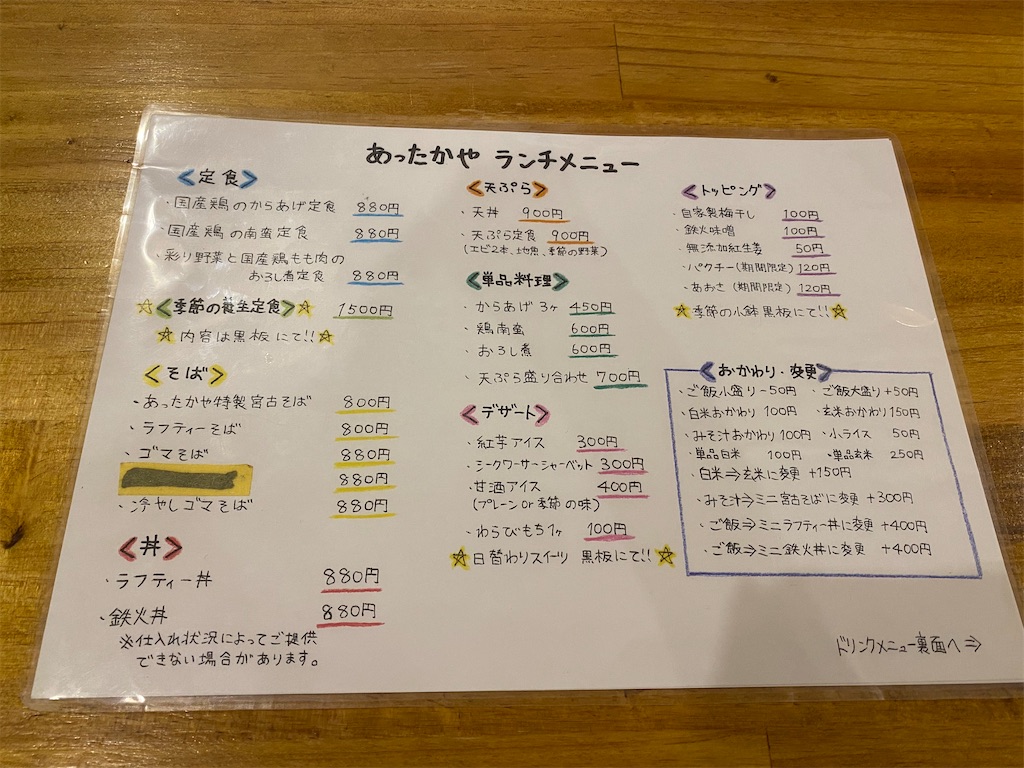 あったかや ランチメニュー
<定食>
・国産鶏のからあげ定食 880円
・国産鶏の南蛮定食 880円
・彩り野菜と国産鶏もも肉の
おろし煮定食 880円
☆<季節の養生定食>☆ 1500円
☆内容は黒板にて!!☆
<そば>
・あったかや特製宮古そば 800円
・ラフティーそば 800円
・ゴマそば 880円
880円
・冷やしゴマそば 880円
<丼>
・ラフティー丼 880円
・鉄火丼 880円
※仕入れ状況によってご提供
できない場合があります。
<天ぷら>
・天丼 900円
・天ぷら定食 900円
(エビ2本、地魚、季節の野菜)
<単品料理>
・からあげ3ヶ 450円
・鶏南蛮 600円
・おろし煮 600円
・天ぷら盛り合わせ 700円
<デザート>
・紅芋アイス 300円
・シークワーサーシャーベット 300円
・甘酒アイス 400円
(プレーンor季節の味)
・わらびもち1ヶ 100円
☆日替わりスイーツ 黒板にて!!☆
<トッピング>
・自家製梅干し 100円
・鉄火味噌 100円
・無添加紅生姜 50円
・パクチー(期間限定) 120円
・あおさ(期間限定) 120円
☆季節の小鉢黒板にて!!☆
<おかわり・変更>
・ご飯小盛り-50円 ・ご飯大盛り+50円
・白米おかわり 100円 ・玄米おかわり150円
・みそ汁おかわり100円 ・小ライス 50円
・単品白米 100円 ・単品玄米 250円
・白米⇒玄米に変更 +150円
・みそ汁⇒ミニ宮古そばに変更 +300円
・ご飯⇒ミニラフティー丼に変更 +400円
・ご飯⇒ミニ鉄火丼に変更 +400円
ドリンクメニュー裏面へ⇒